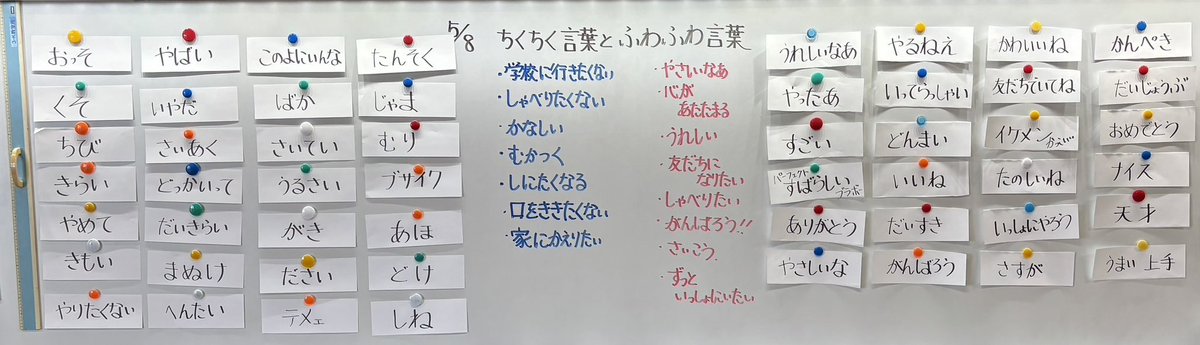 5/8 ちくちく言葉とふわふわ言葉
おっそ
やばい
このよにいんな
たんそく
くそ
いやだ
ばか
じゃま
ちび
さいあく
さいてい
むり
きらい
どっかいって
うるさい
ブサイク
やめて
だいきらい
がき
あほ
きもい
まぬけ
ださい
どけ
やりたくない
へんたい
テメェ
しね
・学校に行きたくない
・しゃべりたくない
・かなしい
・むかつく
・しにたくなる
・口をききたくない
・家にかえりたい
・やさしいなあ
・心が
あたたまる
・うれしい
・友だちに
なりたい
・しゃべりたい
・がんばろう!!
・さいこう
・ずっと
いっしょにいたい
うれしいなあ
やるねえ
かわいいね
かんぺき
やったあ
いってらっしゃい
友だちでいてね
だいじょうぶ
すごい
どんまい
イケメン
おめでとう
パーフェクト
すばらしい
ブラボー
いいね
たのしいね
ナイス
ありがとう
だいすき
いっしょにやろう
天才
やさしいな
がんばろう
さすが
うまい 上手